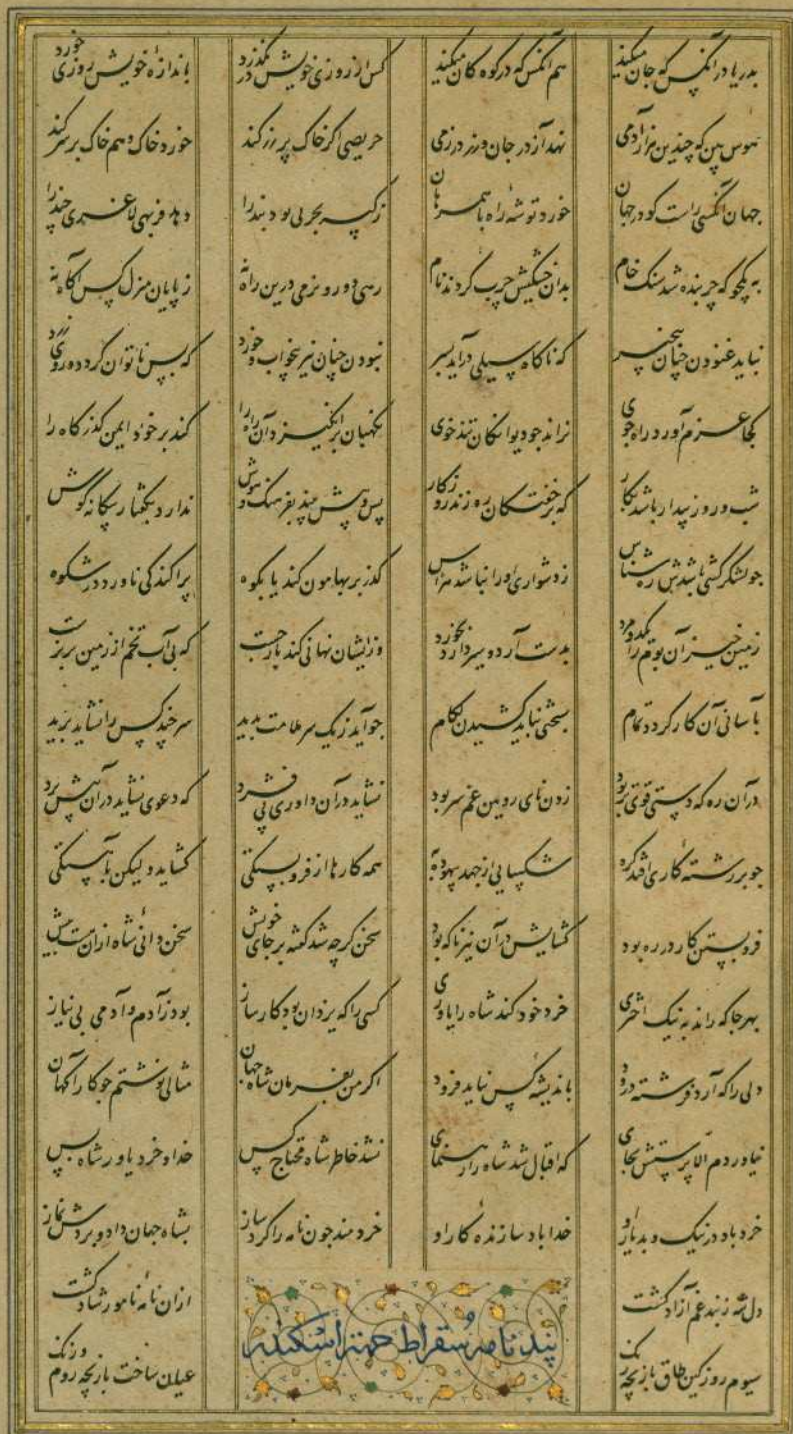 بدریا در آنکس که جان میکند هم آنکس که در کوه کان میکند کس از روزی خویش در نگذرد باندازهٔ خویش روزی خورد
هوس بین که چندین هزار آدمی نهد آز در جان و زر در زمی حریصی اگر خاک پر زر کند خورد خاک و هم خاک بر سر کند
جهان آنکسی راست کو در جهان خورد توشهٔ راه با همرهان ز کیسه بچربی بود بند را دهد فربهی لاغری چند را
به شد سنک خام بدان خشکیش چرب کردند نام رهی دور و درین راه نه ز پایان منزل کس آگاه نه
نباید غنودن چنان بیخبر که ناگاه سیلی درآید بسر نبودن چنان نیز بیخواب و خورد که تن ناتوان گردد و روی زرد
کجا عزم آورد راه جوی نراند جو دیوانگان تند خوی نگهبان برانگیزد آن راه را کند بر خود ایمن گذرگاه را
شب و روز بیدار باشد بکار که بر خفتگان ره زند روزگار پس و پیش بیند بفرهنگ و هوش ندارد بگفتار بیگانه گوش
جو لشکرکشی باشدش ره شناس ز دشواری او را نباشد هراس گذر بر بهامون کند یا بکوه پراکندگی ناورد در شکوه
زمین خیز آن بوم را بدست آرد و سیر دارد بخورد وز ایشان نهانی کند بازجست که بی آب تخم از زمین بر نرست
بآسانی آن کار گردد تمام بسختی نباید کشیدن لگام جو آید ز یک سر ملامت بدید سر چند کس را نشاید برید
در آن ره که دستی قوی تر بود زدن نای رویین غم سر بود نشاید در آن داوری پی فشرد که دعوی نشاید در آن پیش برد
جو بر رشتهٔ کاری افتد گره شکیبایی از جهد بیهوده به همه کارها از فروبستگی گشاید ولیکن بآهستگی
فروبستن کار در ره بود گشایش در آن نیز ناگه بود سخن گرچه شد گفته بر جای خویش سخن دانی شاه ازان هست بیش
بهر جا که راند به نیک اختری خرد خود کند شاه را یاوری کسی را که یزدان بود کارساز بود زآدم و آدمی بی نیاز
دلی را که آرد فرشته درود باندیشهٔ کس نیاید فرود اگر من بفرمان شاه جهان مثالی نوشتم جو کارآگهان
نیاوردم الا پرستش بجای که اقبال شد شاه را رهنمای نشد خاطر شاه محتاج کس خدا و خرد یاور شاه بس
خرد باد در نیک و بد یار او خدا باد سازندهٔ کار او خردمند جون نامه را کرد ساز بشاه جهان داد و بردش نماز
دل شه ز بند غم آزاد گشت ازان نامهٔ نامور شاد گشت
پند نامهٔ سقراط جهتهٔ اسکندر
سیوم روز کین طاق بازیچه رنک عیان ساخت بازیچه روم و زنک